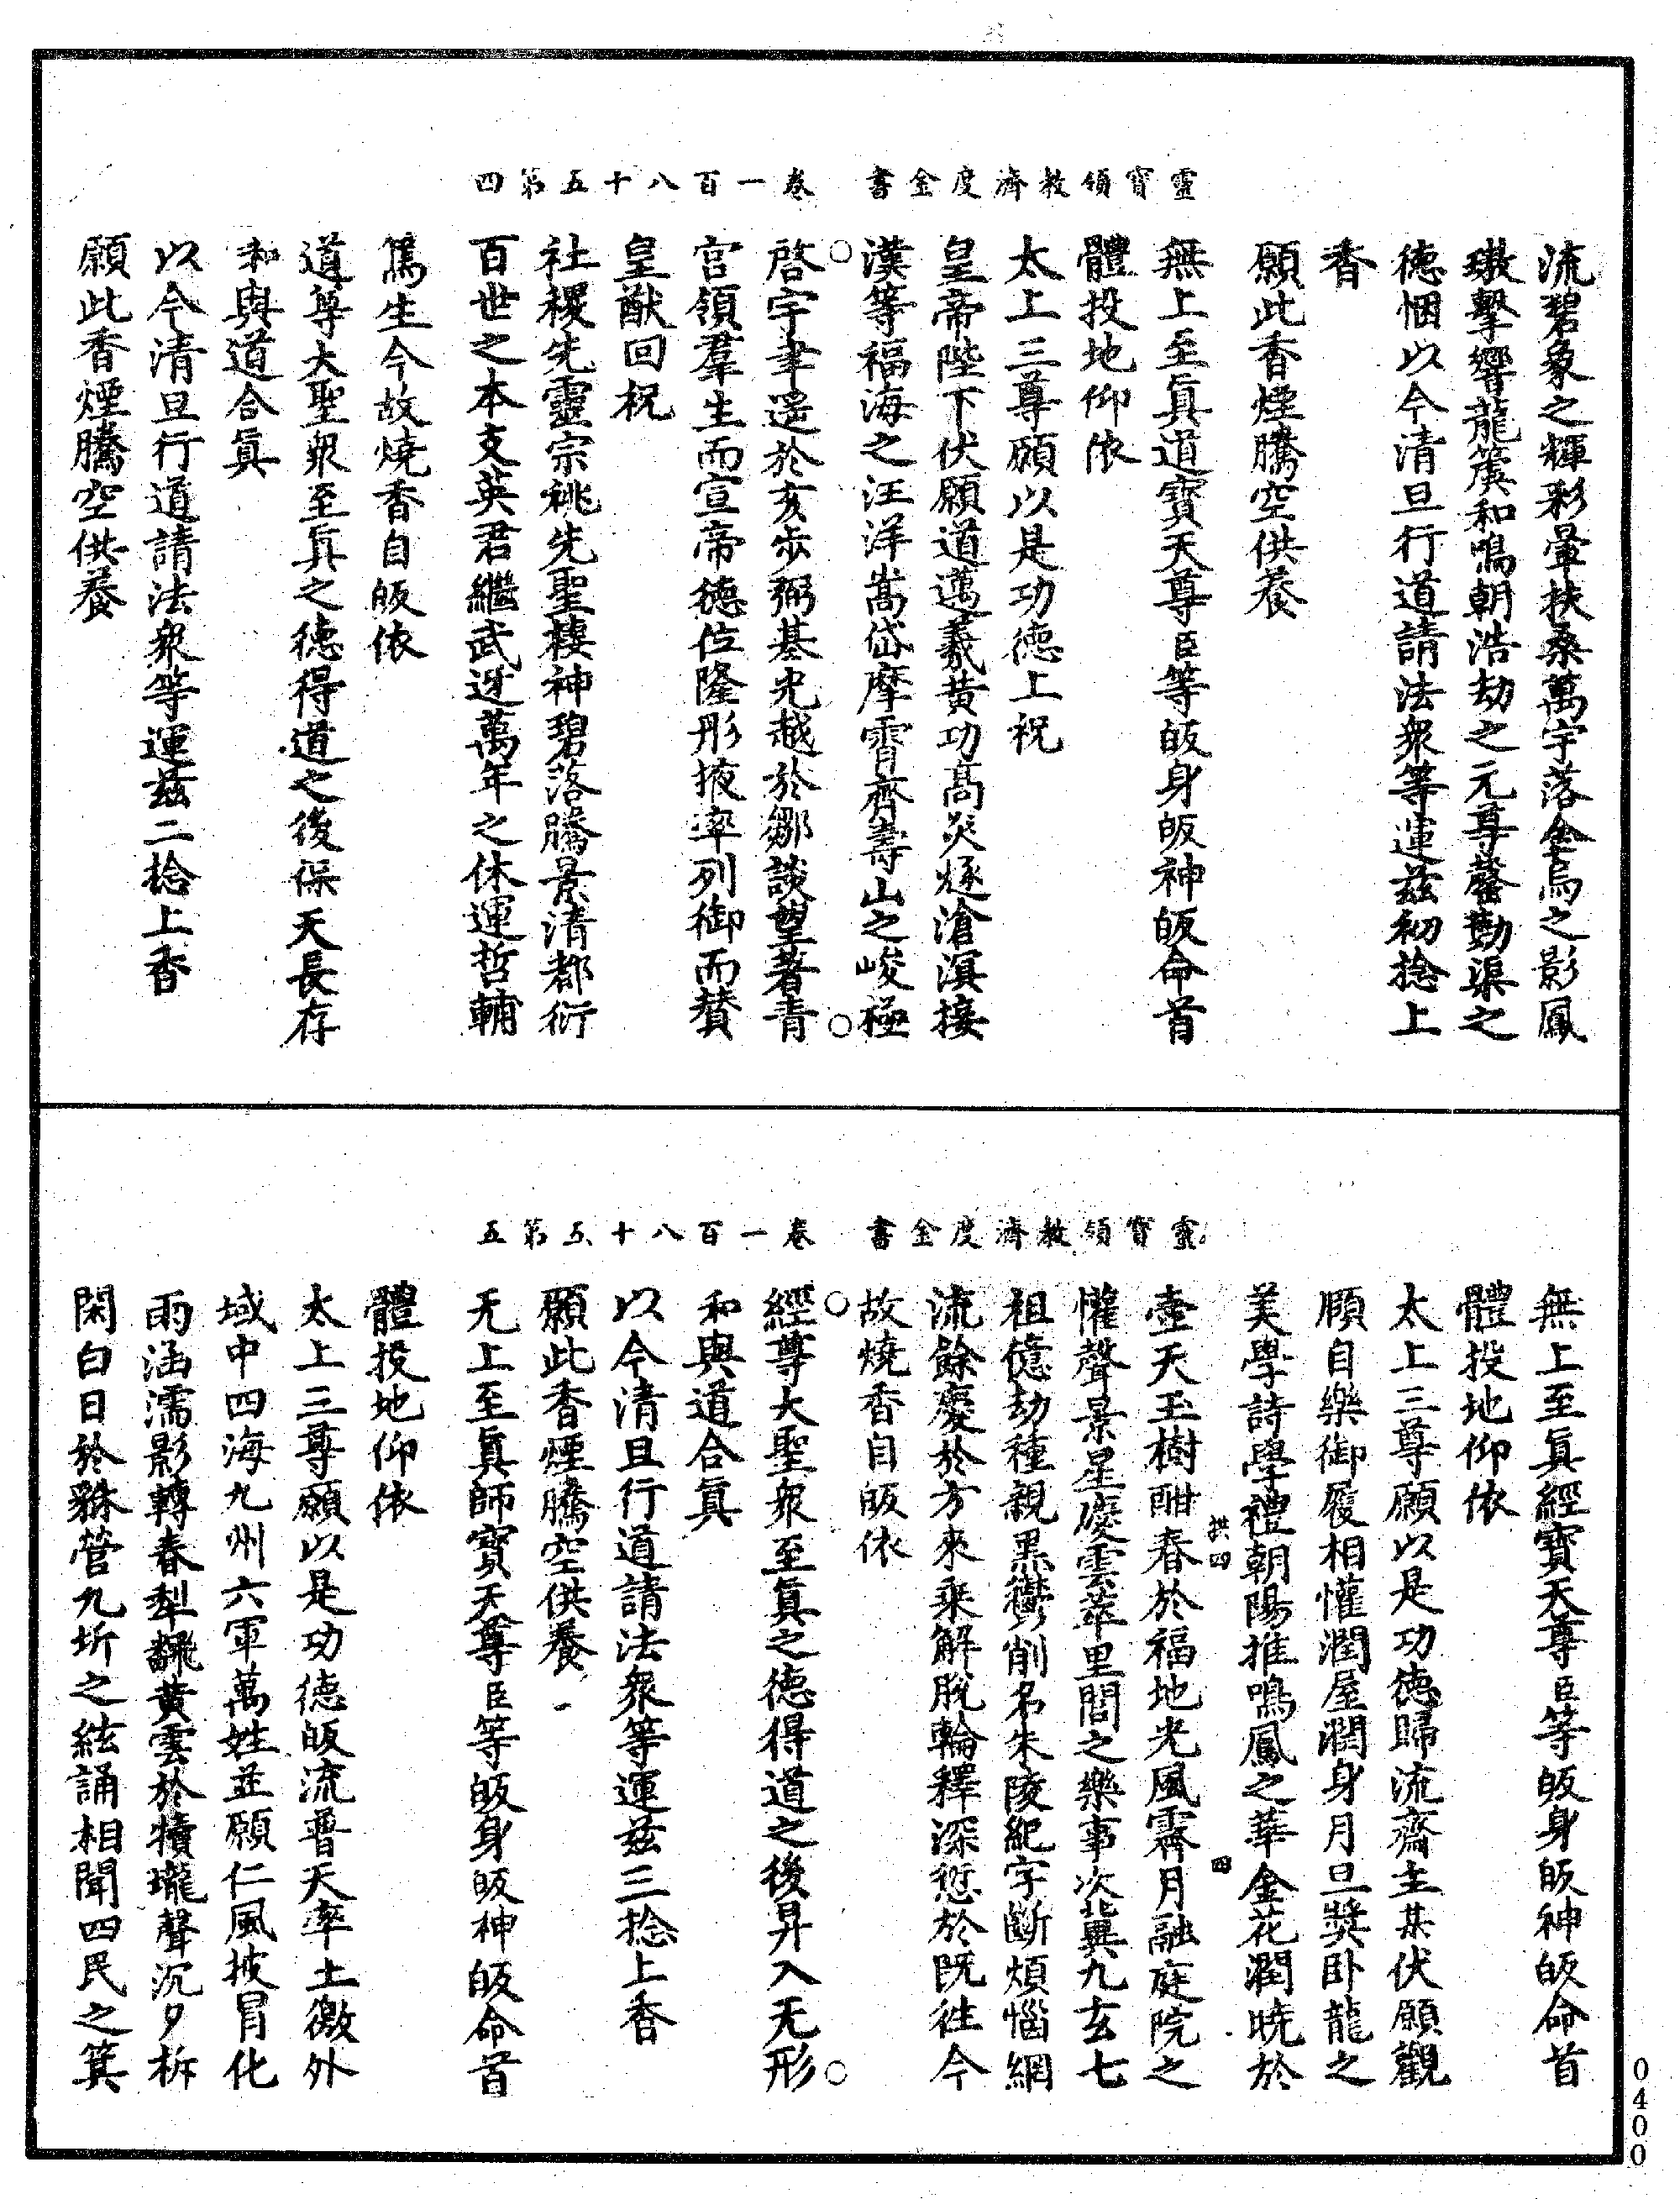 靈寶領教濟度金書　卷一百八十五第四
流碧象之輝彩暈扶桑萬宇落金烏之影鳳
璈擊響龍簴和鳴朝浩劫之元尊罄勤渠之
德悃以今清旦行道請法衆等運兹初捻上
香
願此香煙騰空供養
無上至眞道寶天尊臣等皈身皈神皈命首
體投地仰依
太上三尊願以是功德上祝
皇帝陛下伏願道邁羲黄功髙炎㷟滄溟接
漢等福海之汪洋嵩岱摩霄齊壽山之峻極
啓宇聿遥於亥步弼基允越於鄒談望著青
宫領羣生而宣帝德位隆彤掖率列御而賛
皇猷回祝
社稷先靈宗祧先聖棲神碧落騰景清都衍
百世之本支英君繼武迓萬年之休運哲輔
篤生今故燒香自皈依
道尊大聖衆至眞之德得道之後保天長存
和與道合眞
以今清旦行道請法衆等運兹二捻上香
願此香煙騰空供養
靈寶領教濟度金書　卷一百八十五第五
無上至眞經寶天尊臣等皈身皈神皈命首
體投地仰依
太上三尊願以是功德歸流齋主某伏願觀
頤自樂御履相懽潤屋潤身月旦獎卧龍之
美學詩學禮朝陽推鳴鳳之華金花潤曉於
壺天玉樹酣春於福地光風霽月融庭院之
懽聲景星慶雲萃里閭之樂事次兾九玄七
祖億劫種親黑欎削名朱陵紀字斷煩惱網
流餘慶於方來乘解脫輪釋深愆於既往今
故燒香自皈依
經尊大聖衆至眞之德得道之後昇入无形
和與道合眞
以今清旦行道請法衆等運兹三捻上香
願此香煙騰空供養
无上至眞師寶天尊臣等皈身皈神皈命首
體投地仰依
太上三尊願以是功德皈流普天率土徼外
域中四海九州六軍萬姓並願仁風披冒化
雨涵濡影轉春犁飜黄雲於犢壠聲沉夕柝
閑白日於貅營九圻之絃誦相聞四民之箕
拱四
四
0400